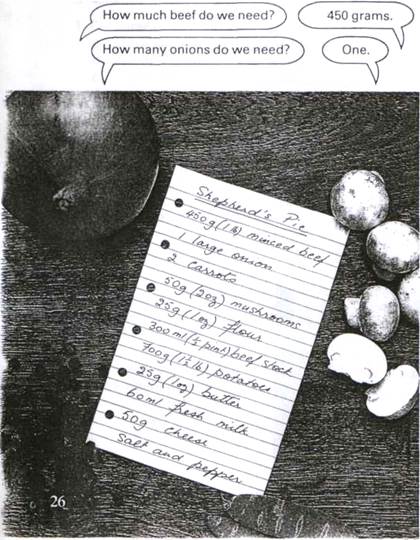 How much beef do we need?
450 grams.
How many onions do we need?
One.
Shepherd's Pie
450g (1 lb) minced beef
1 large onion
2 carrots
50g (2oz) mushrooms
25g (1oz) flour
300 ml (½ pint) beef stock
700g (1½ lb) potatoes
25g (1oz) butter
60ml fresh milk
50g cheese
Salt and pepper
26